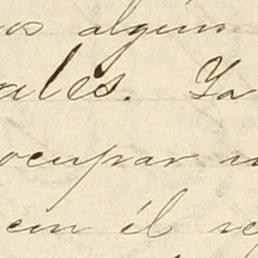 os algun
ales. Ya
ocupar
em él re